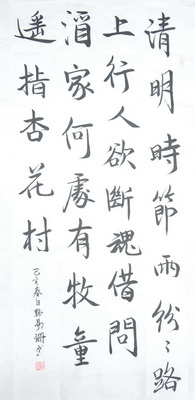 清明時節雨紛〻路
上行人欲斷魂借問
酒家何處有牧童
遥指杏花村
己亥春日